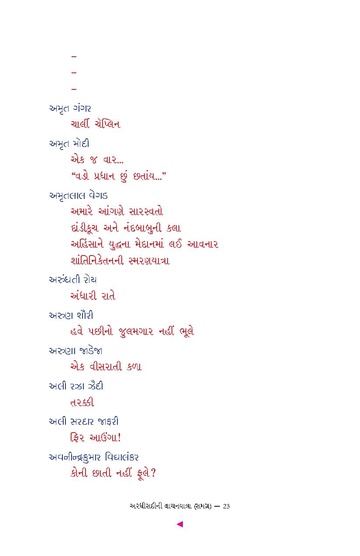 –
–
–
અમૃત ગંગર
ચાર્લી ચૅપ્લિન
અમૃત મોદી
એક જ વાર...
“વડો પ્રધાન છું છતાંય...”
અમૃતલાલ વેગડ
અમારે આંગણે સારસ્વતો
દાંડીકૂચ અને નંદબાબુની કલા
અહિંસાને યુદ્ધના મેદાનમાં લઈ આવનાર
શાંતિનિકેતનની સ્મરણયાત્રા
અરુંધતી રૉય
અંધારી રાતે
અરુણ શૌરી
હવે પછીનો જુલમગાર નહીં ભૂલે
અરુણા જાડેજા
એક વીસરાતી કળા
અલી રઝા ઝૈદી
તરક્કી
અલી સરદાર જાફરી
ફિર આઉંગા!
અવનીન્દ્રકુમાર વિદ્યાલંકર
કોની છાતી નહીં ફૂલે?
અરધીસદીની વાચનયાત્રા (સમગ્ર) — 23
◀